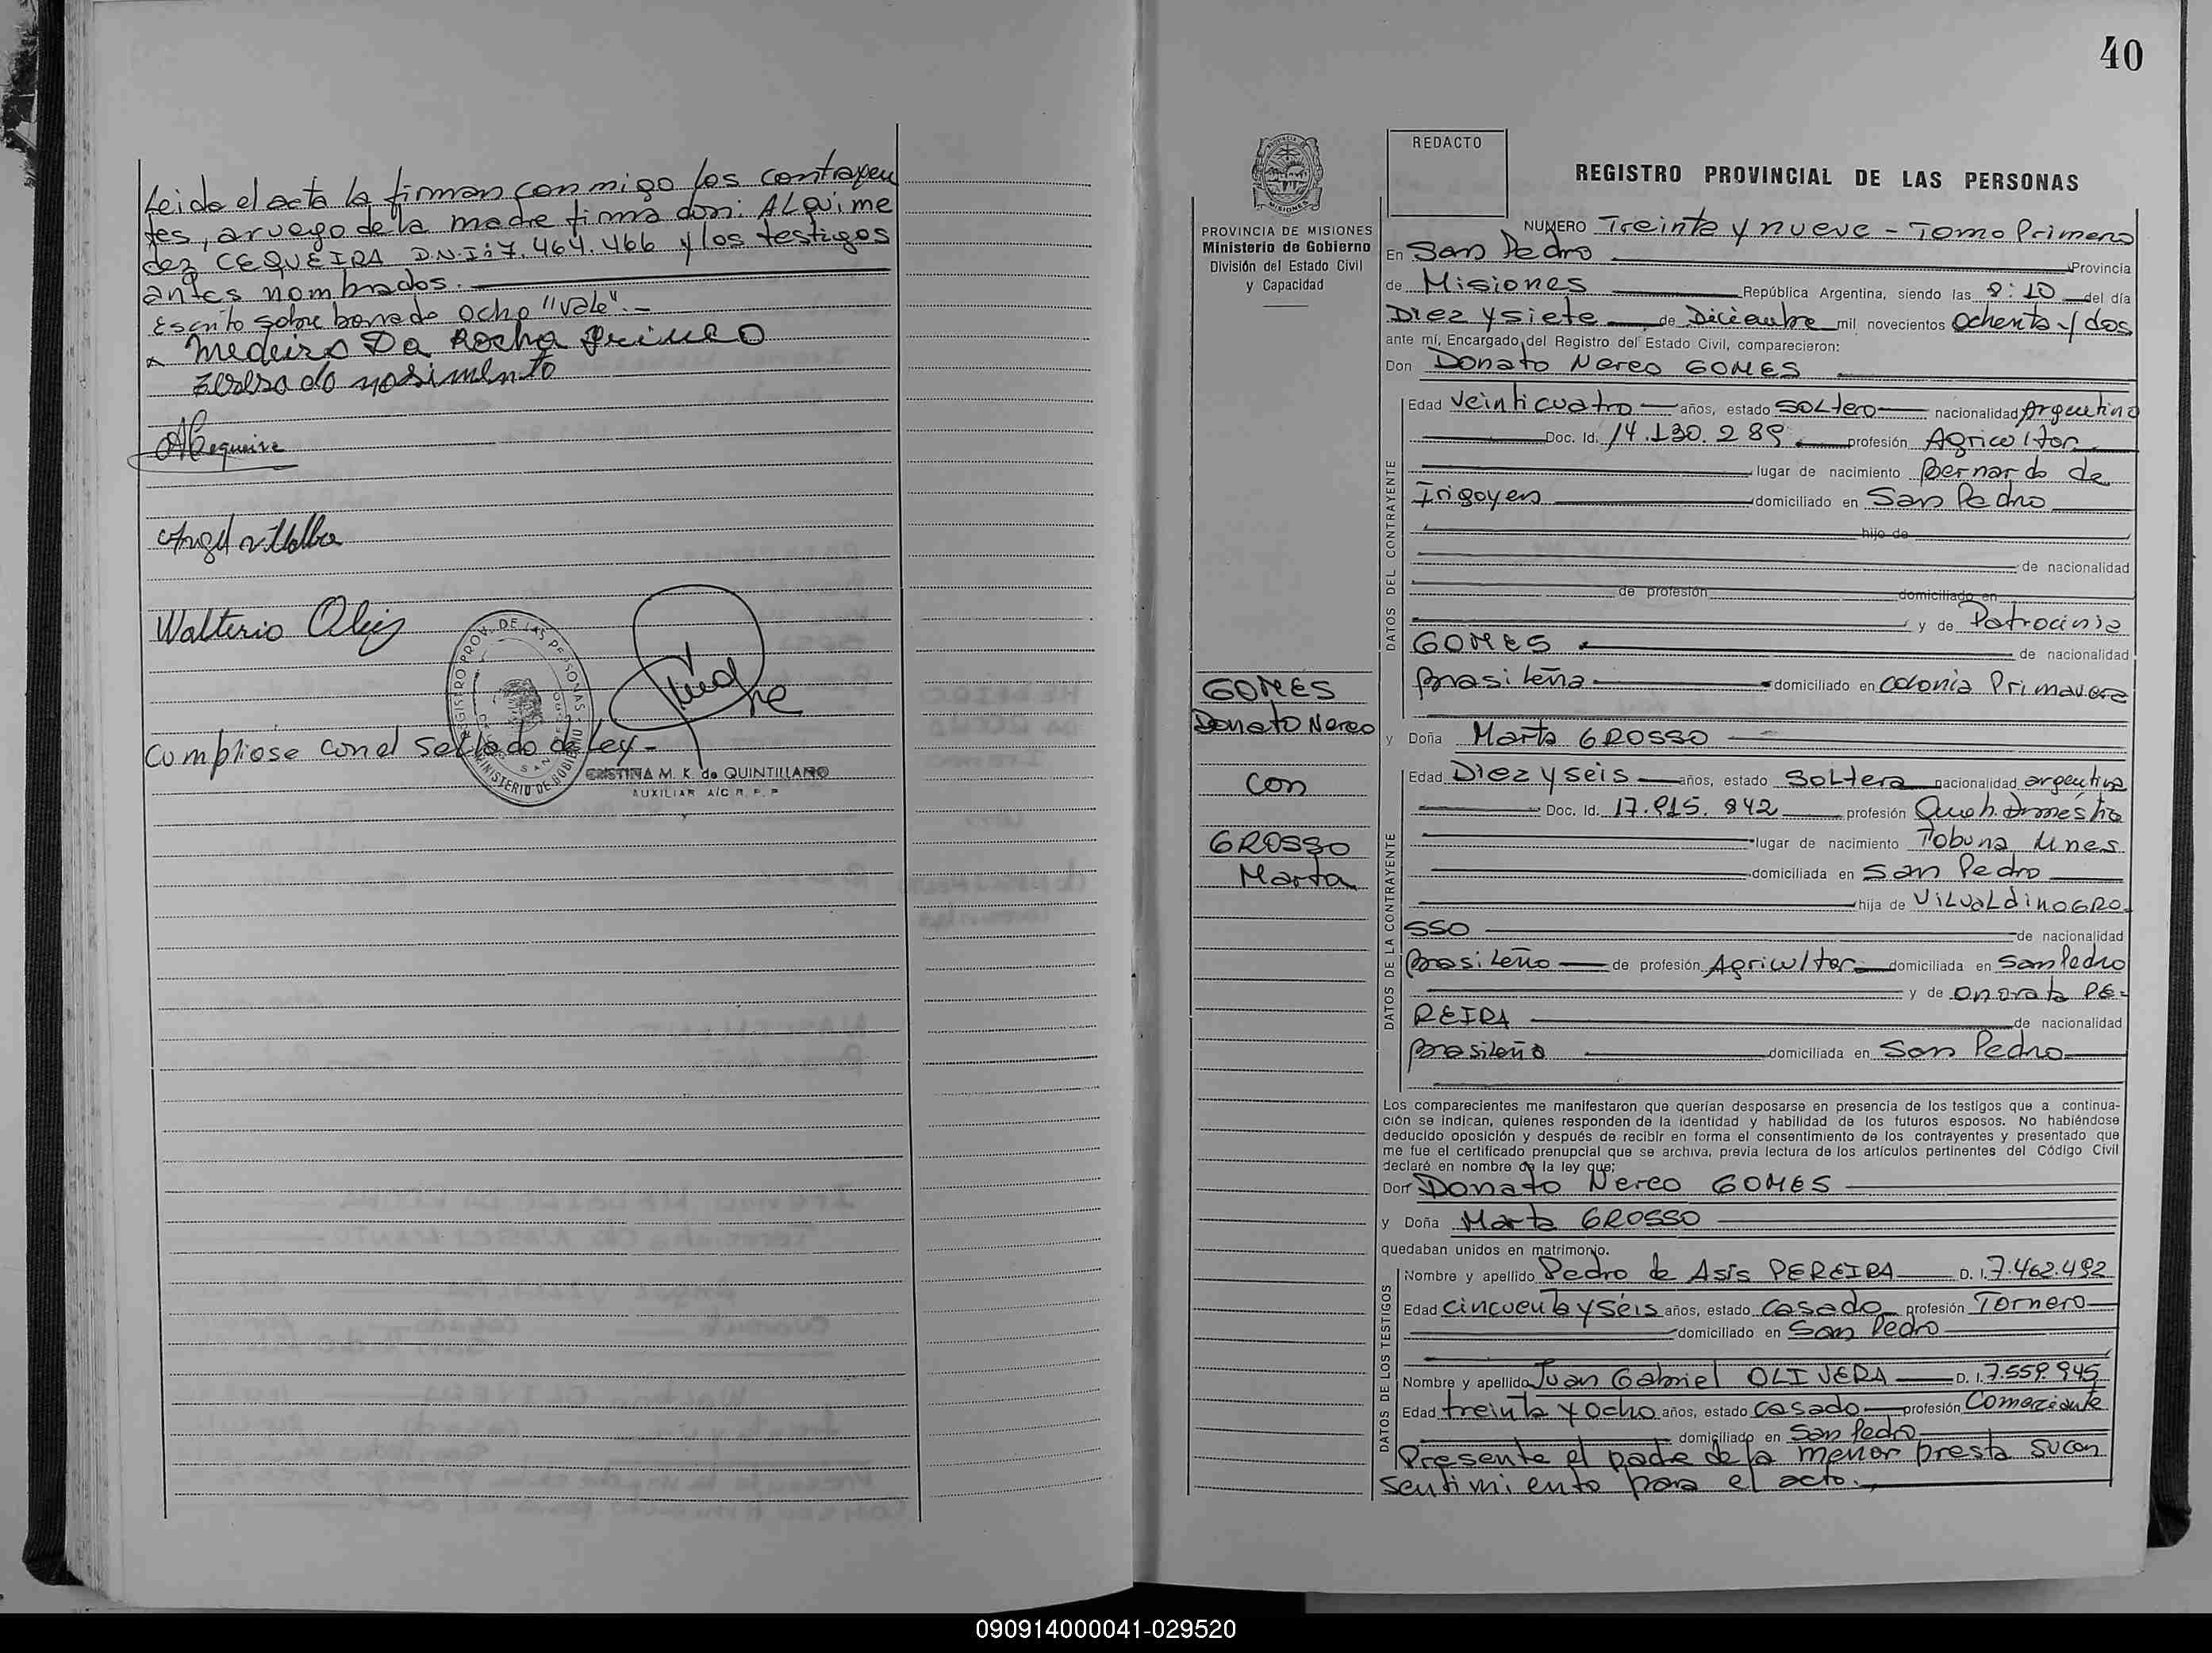 Leida el acta la firman conmigo los contrayen
tes, a ruego de la madre firma don: ALquime
dez CEQUEIRA D.N.I: 7.464.466 y los testigos
antes nombrados.
Escrito sobre borrado ocho "vale".-
x Medeiro Da Rocha
do
ACequeira
Angel villalba
Walterio
Cumpliose con el Sellado de Ley-
REGISTRO PROV. DE LAS PERSONAS
MINISTERIO DE GOBIERNO
CRISTINA M. K. de QUINTILLANO
AUXILIAR A/C R. P. P
40
PROVINCIA DE MISIONES
Ministerio de Gobierno
División del Estado Civil
y Capacidad
GOMES
Donato Nereo
con
GROSSO
Marta
REDACTO
REGISTRO PROVINCIAL DE LAS PERSONAS
NUMERO Treinta y nueve - Tomo Primero
En San Pedro Provincia
de Misiones República Argentina, siendo las 8:10 del día
Diez y siete de Diciembre mil novecientos ochenta y dos
ante mí, Encargado del Registro del Estado Civil, comparecieron:
Don Donato Nereo GOMES
DATOS DEL CONTRAYENTE
Edad veinticuatro años, estado SOLtero nacionalidad Argentino
Doc. Id. 14.130.289 profesión Agricultor
lugar de nacimiento Bernardo de
Irigoyen domiciliado en San Pedro
hijo de
de nacionalidad
de profesión domiciliado en
y de Patrocinia
GOMES de nacionalidad
Brasileña domiciliado en colonia Primavera
y Doña Marta GROSSO
DATOS DE LA CONTRAYENTE
Edad Diez y seis años, estado SOLtera nacionalidad argentina
Doc. Id. 17.915.842 profesión Queh. domésticos
lugar de nacimiento Tobuna Mnes
domiciliada en San Pedro
hija de ViLvaLdino GRO-
SSO de nacionalidad
Brasileño de profesión Agricultor domiciliada en San Pedro
y de Onorata PE-
REIRA de nacionalidad
Brasileña domiciliada en San Pedro
Los comparecientes me manifestaron que querían desposarse en presencia de los testigos que a continua-
ción se indican, quienes responden de la identidad y habilidad de los futuros esposos. No habiéndose
deducido oposición y después de recibir en forma el consentimiento de los contrayentes y presentado que
me fue el certificado prenupcial que se archiva, previa lectura de los artículos pertinentes del Código Civil
declaré en nombre de la ley que;
Don Donato Nereo GOMES
y Doña Marta GROSSO
quedaban unidos en matrimonio.
DATOS DE LOS TESTIGOS
Nombre y apellido Pedro de Asis PEREIRA D. I. 7.462.492
Edad cincuenta y séis años, estado casado profesión Tornero
domiciliado en San Pedro
Nombre y apellido Juan Gabriel OLIVERA D. I. 7.559.945
Edad treinta y ocho años, estado casado profesión Comerciante
domiciliado en San Pedro
Presente el padre de la menor presta su con
sentimiento para el acto.
090914000041-029520